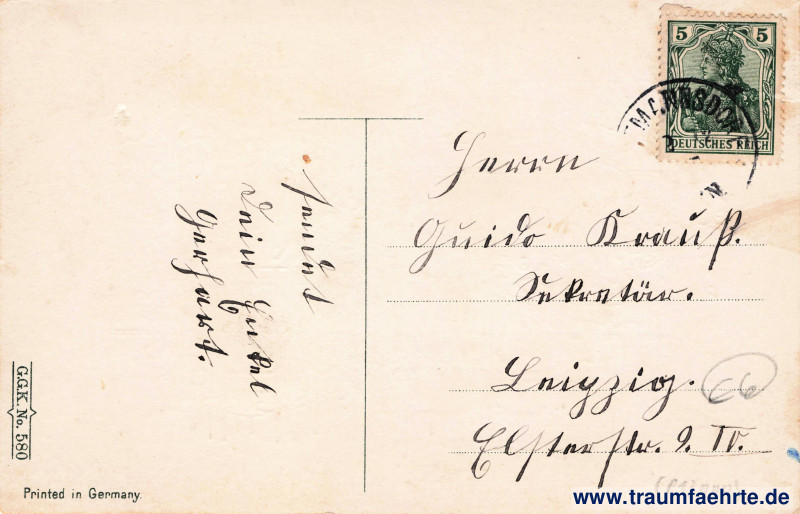 sendet
Dein Enkel
Gerhart.
Herrn
Guido Krauß.
Sekretär.
Leipzig.
Elsterstr. 9. IV.
5 5
DEUTSCHES REICH
66
G.G.K. No. 580
Printed in Germany.
www.traumfaehrte.de